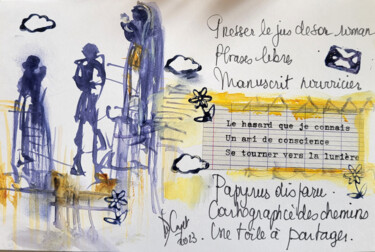 Presser le jus de son roman
Phrases libres
Manuscrit nourricier
Le hasard que je connais
Un ami de conscience
Se tourner vers la lumière
Papyrus disparu.
Cartographie des chemins
Une toile à partager.
2023